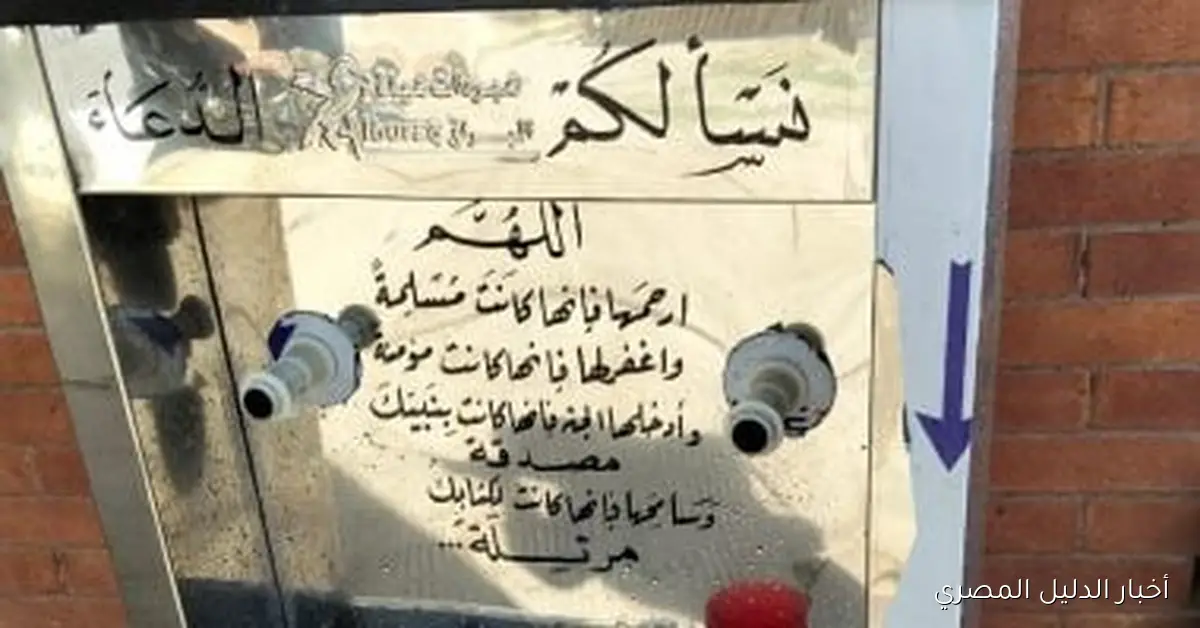 نَسْأَلُكُمْ الدُّعَاءَ
اللهُمَّ
ارحمَها فإنها كانَتَ مُسَلِمةٌ
واغفرلها فإنها كانت مؤمنة
وأدخلها الجنة فإنها كانت بِنَبِيَكَ
مصدقة
وَسَامحها فإنها كانت لِكتابِكَ
مرتِلَّةً ...
أخبار الدليل المصري